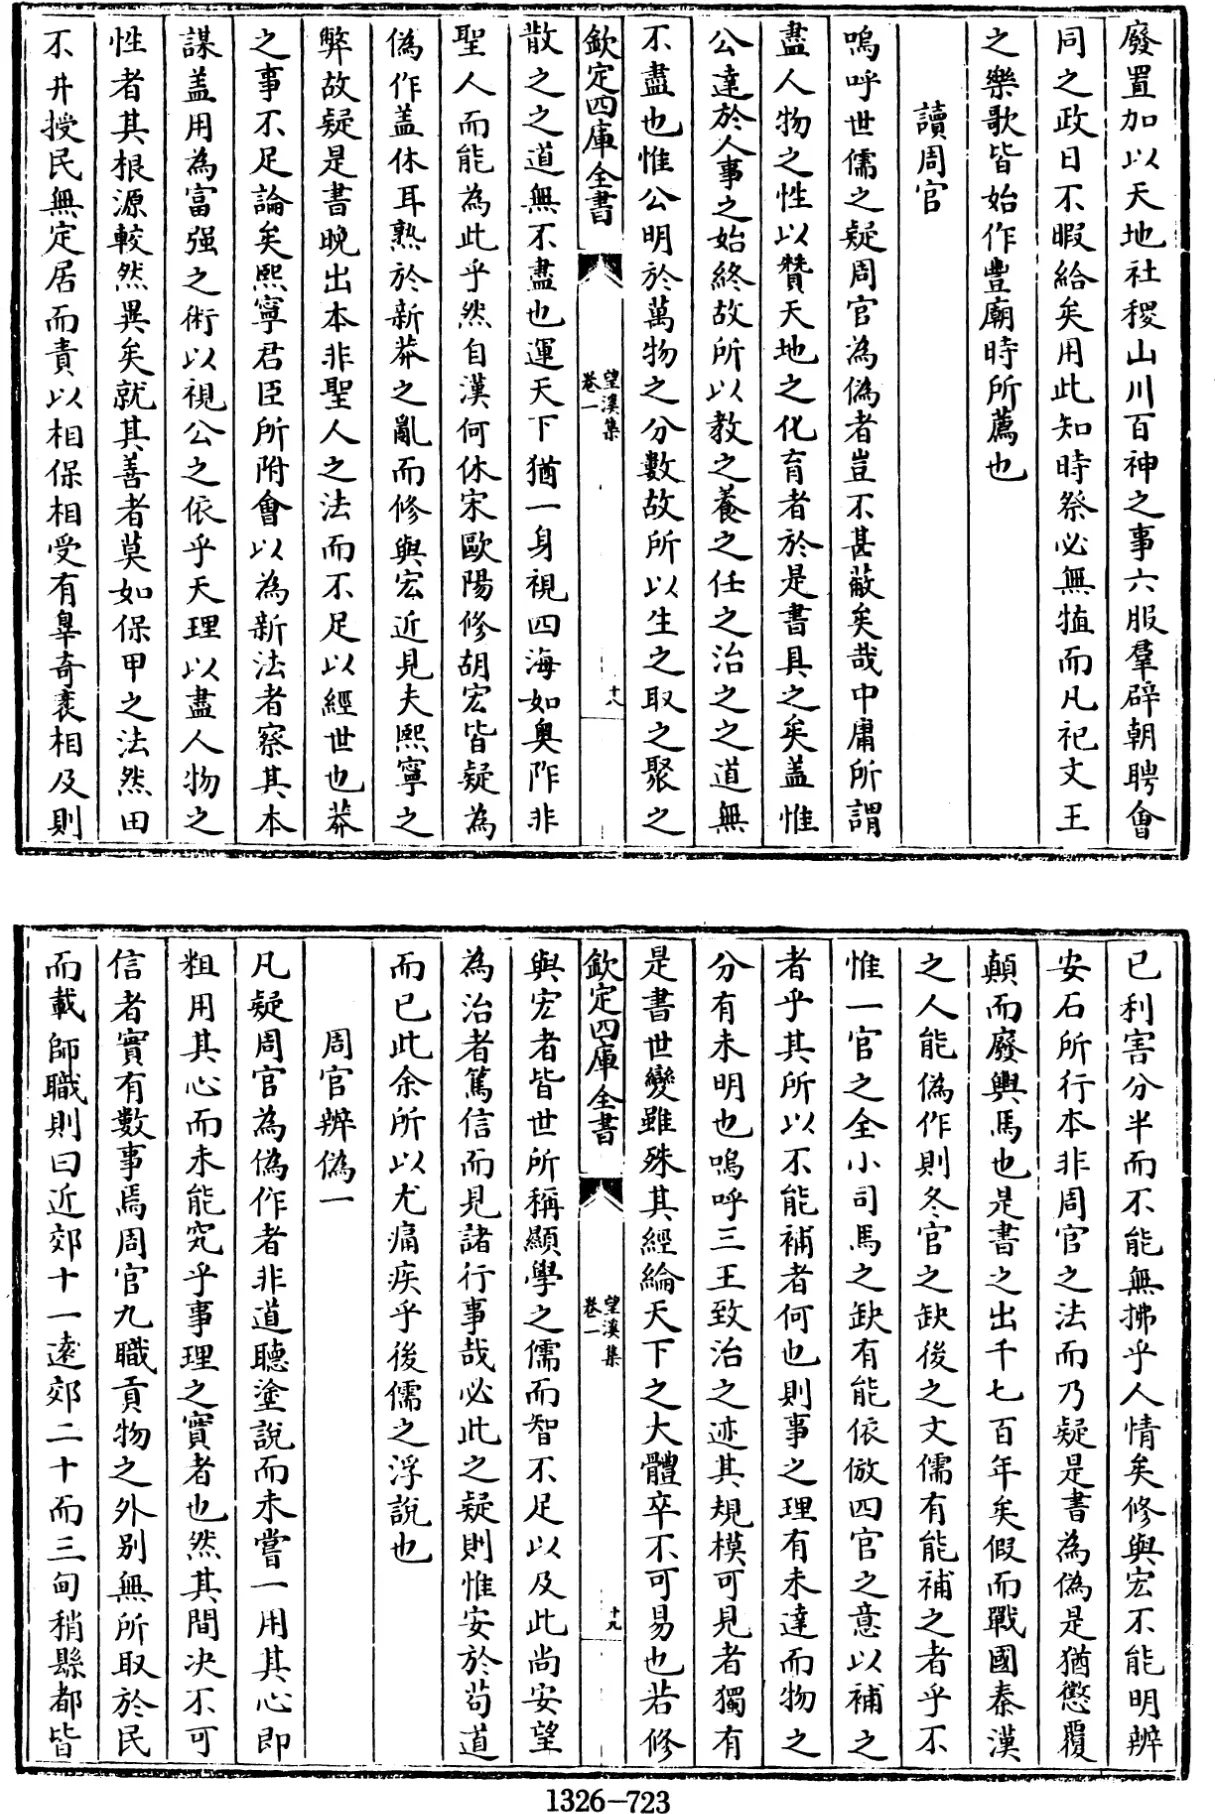 廢置加以天地社稷山川百神之事六服羣辟朝聘會
同之政日不暇給矣用此知時祭必無犆而凡祀文王
之樂歌皆始作豐廟時所薦也
讀周官
嗚呼世儒之疑周官為偽者豈不甚蔽矣哉中庸所謂
盡人物之性以贊天地之化育者於是書具之矣盖惟
公達於人事之始終故所以教之養之任之治之之道無
不盡也惟公明於萬物之分數故所以生之取之聚之
欽定四庫全書
望溪集
卷一
十八
散之之道無不盡也運天下猶一身視四海如奧阼非
聖人而能為此乎然自漢何休宋歐陽修胡宏皆疑為
偽作盖休耳熟於新莽之亂而修與宏近見夫熙寧之
弊故疑是書晚出本非聖人之法而不足以經世也莽
之事不足論矣熙寧君臣所附會以為新法者察其本
謀盖用為富强之術以視公之依乎天理以盡人物之
性者其根源較然異矣就其善者莫如保甲之法然田
不井授民無定居而責以相保相受有辠奇衺相及則
已利害分半而不能無拂乎人情矣修與宏不能明辨
安石所行本非周官之法而乃疑是書為偽是猶懲覆
顛而廢輿馬也是書之出千七百年矣假而戰國秦漢
之人能偽作則冬官之缺後之文儒有能補之者乎不
惟一官之全小司馬之缺有能依倣四官之意以補之
者乎其所以不能補者何也則事之理有未達而物之
分有未明也嗚呼三王致治之迹其規模可見者獨有
是書世變雖殊其經綸天下之大體卒不可易也若修
欽定四庫全書
望溪集
卷一
十九
與宏者皆世所稱顯學之儒而智不足以及此尚安望
為治者篤信而見諸行事哉必此之疑則惟安於苟道
而已此余所以尤痛疾乎後儒之浮說也
周官辨偽一
凡疑周官為偽作者非道聽塗說而未嘗一用其心即
粗用其心而未能究乎事理之實者也然其間决不可
信者實有數事焉周官九職貢物之外別無所取於民
而載師職則曰近郊十一遠郊二十而三甸稍縣都皆
1326-723